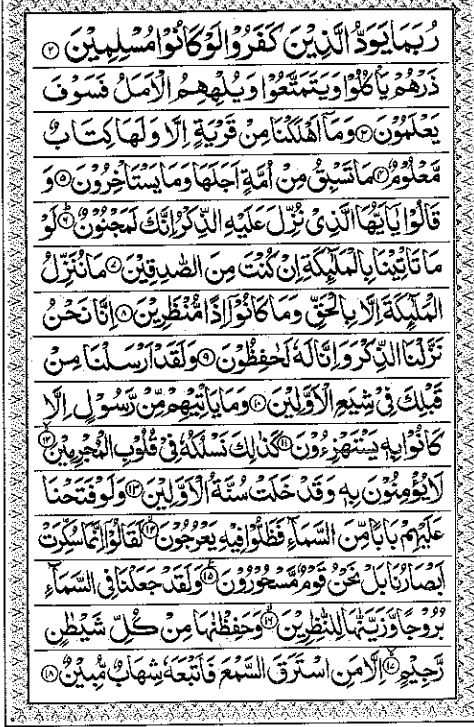 رُبَمَا يَوَدُّ الَّذِيْنَ كَفَرُوْا لَوْ كَانُوْا مُسْلِمِيْنَ ۝۲
ذَرْهُمْ يَاْكُلُوْا وَيَتَمَتَّعُوْا وَيُلْهِهِمُ الْاَمَلُ فَسَوْفَ
يَعْلَمُوْنَ ۝۳ وَمَاۤ اَهْلَكْنَا مِنْ قَرْيَةٍ اِلَّا وَلَهَا كِتَابٌ
مَّعْلُوْمٌ ۝۴ مَا تَسْبِقُ مِنْ اُمَّةٍ اَجَلَهَا وَمَا يَسْتَاْخِرُوْنَ ۝۵ وَ
قَالُوْا يٰۤاَيُّهَا الَّذِيْ نُزِّلَ عَلَيْهِ الذِّكْرُ اِنَّكَ لَمَجْنُوْنٌ ۝۶ لَوْ
مَا تَاْتِيْنَا بِالْمَلٰٓئِكَةِ اِنْ كُنْتَ مِنَ الصّٰدِقِيْنَ ۝۷ مَا نُنَزِّلُ
الْمَلٰٓئِكَةَ اِلَّا بِالْحَقِّ وَمَا كَانُوْۤا اِذًا مُّنْظَرِيْنَ ۝۸ اِنَّا نَحْنُ
نَزَّلْنَا الذِّكْرَ وَاِنَّا لَهٗ لَحٰفِظُوْنَ ۝۹ وَلَقَدْ اَرْسَلْنَا مِنْ
قَبْلِكَ فِيْ شِيَعِ الْاَوَّلِيْنَ ۝۱۰ وَمَا يَاْتِيْهِمْ مِّنْ رَّسُوْلٍ اِلَّا
كَانُوْا بِهٖ يَسْتَهْزِءُوْنَ ۝۱۱ كَذٰلِكَ نَسْلُكُهٗ فِيْ قُلُوْبِ الْمُجْرِمِيْنَ ۝۱۲
لَا يُؤْمِنُوْنَ بِهٖ وَقَدْ خَلَتْ سُنَّةُ الْاَوَّلِيْنَ ۝۱۳ وَلَوْ فَتَحْنَا
عَلَيْهِمْ بَابًا مِّنَ السَّمَآءِ فَظَلُّوْا فِيْهِ يَعْرُجُوْنَ ۝۱۴ لَقَالُوْۤا اِنَّمَا سُكِّرَتْ
اَبْصَارُنَا بَلْ نَحْنُ قَوْمٌ مَّسْحُوْرُوْنَ ۝۱۵ وَلَقَدْ جَعَلْنَا فِي السَّمَآءِ
بُرُوْجًا وَّزَيَّنّٰهَا لِلنّٰظِرِيْنَ ۝۱۶ وَحَفِظْنٰهَا مِنْ كُلِّ شَيْطٰنٍ
رَّجِيْمٍ ۝۱۷ اِلَّا مَنِ اسْتَرَقَ السَّمْعَ فَاَتْبَعَهٗ شِهَابٌ مُّبِيْنٌ ۝۱۸